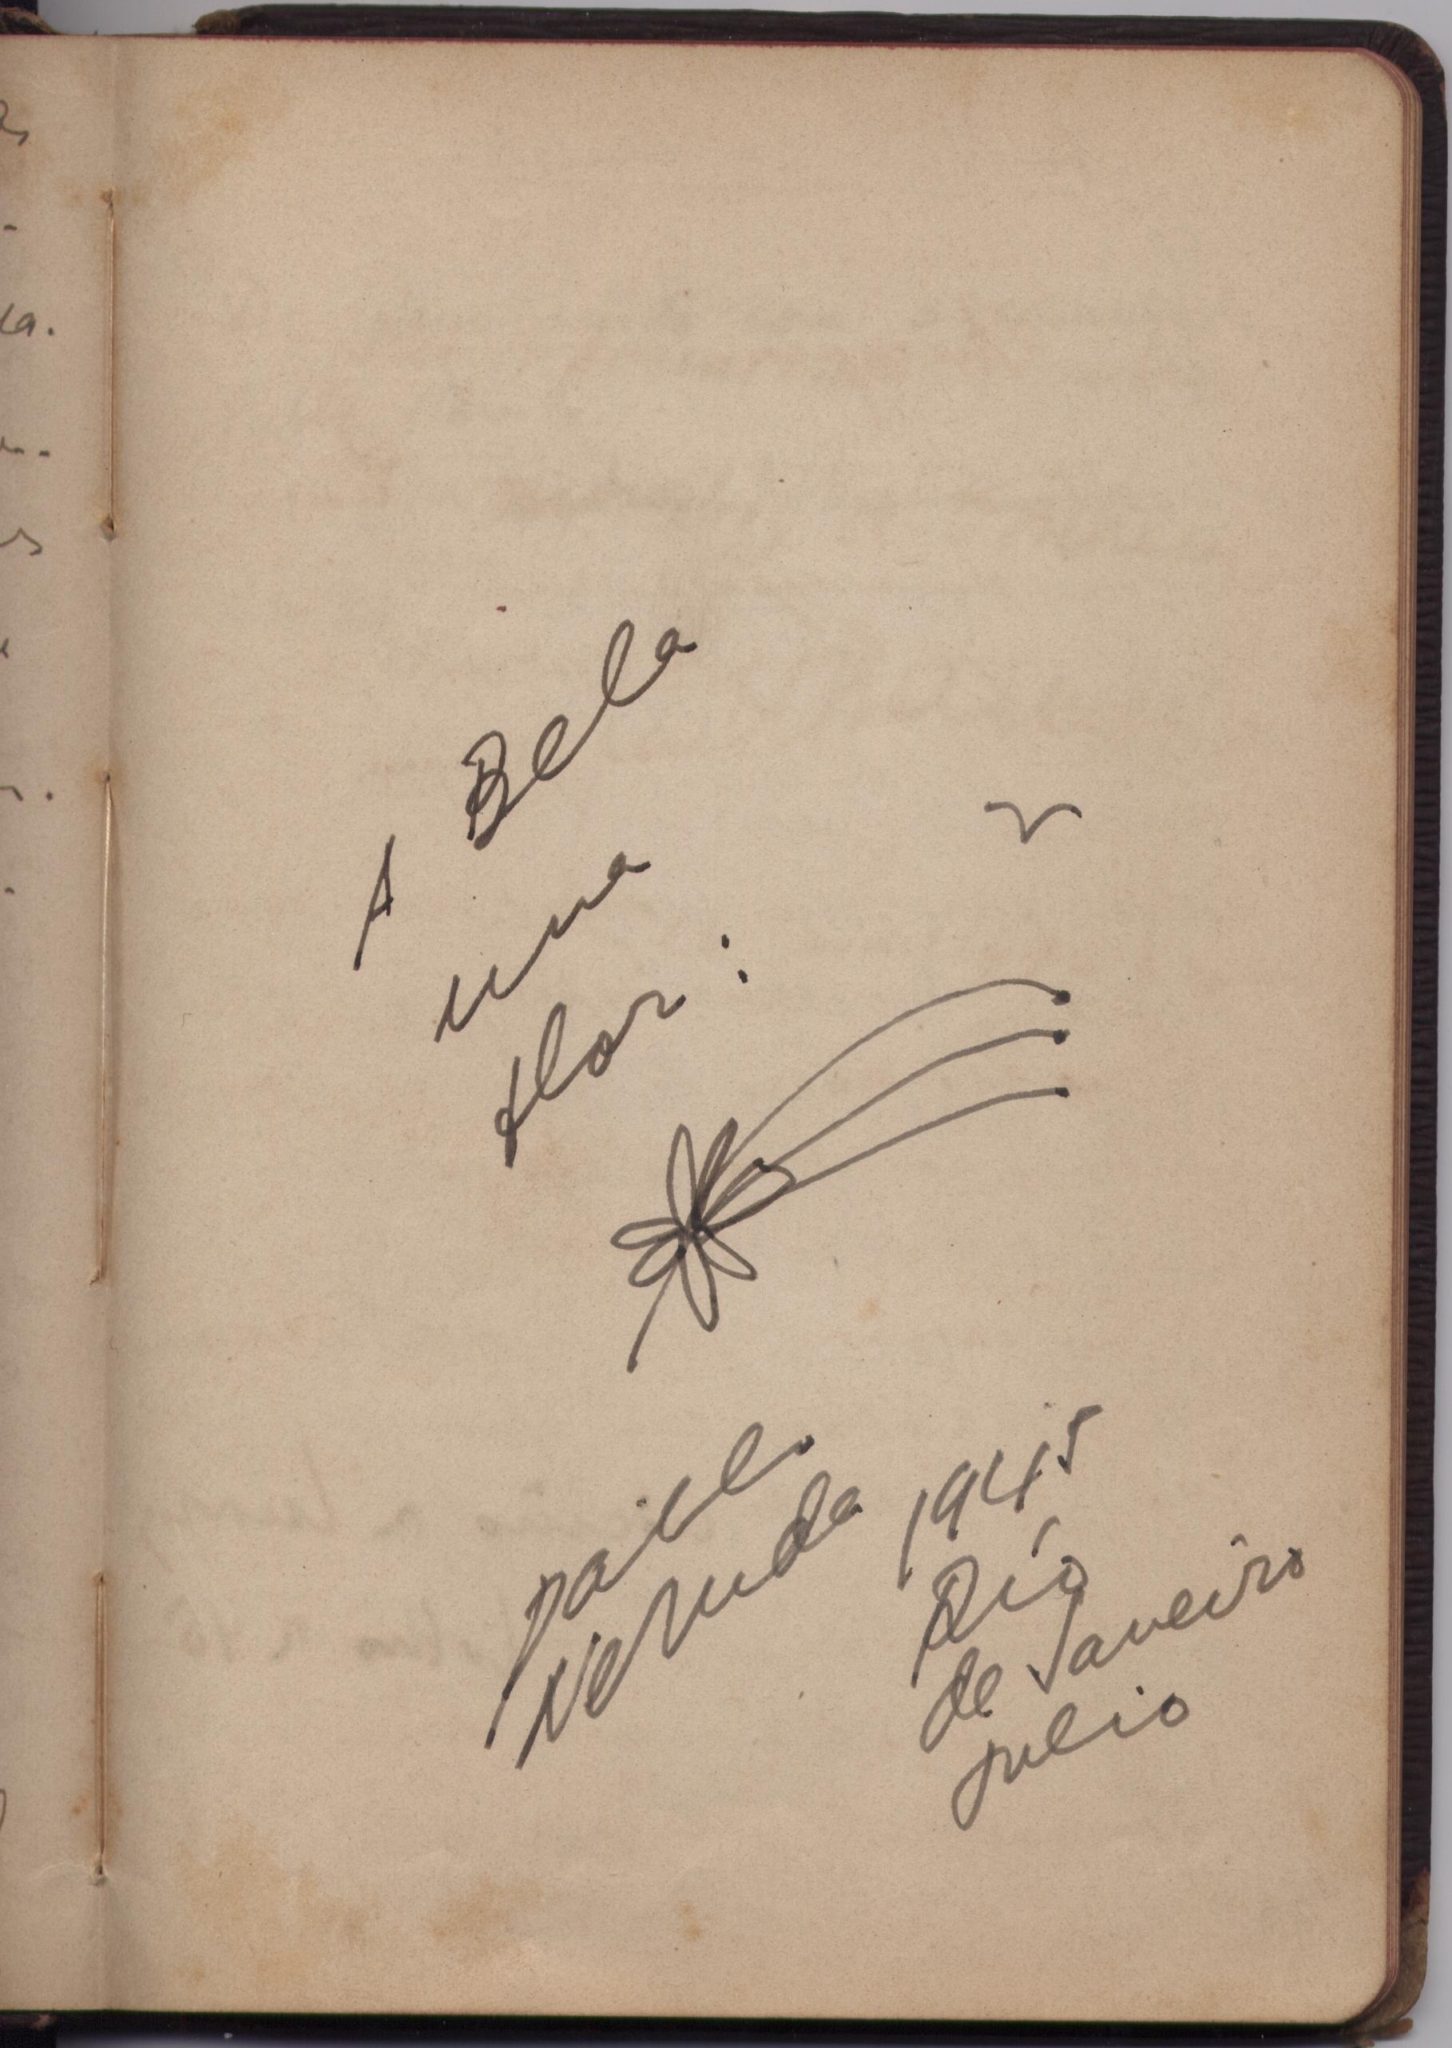 A Bela
una
flor:
Pablo
Neruda
1945
Río
de Janeiro
julio